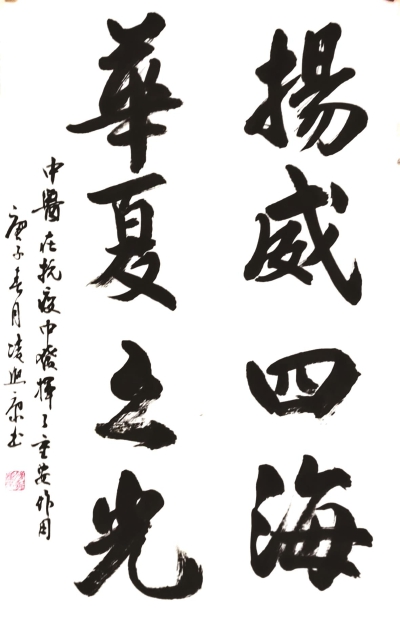 揚威四海
華夏之光
中醫在抗疫中發揮了重要作用
庚子春月凌照康书